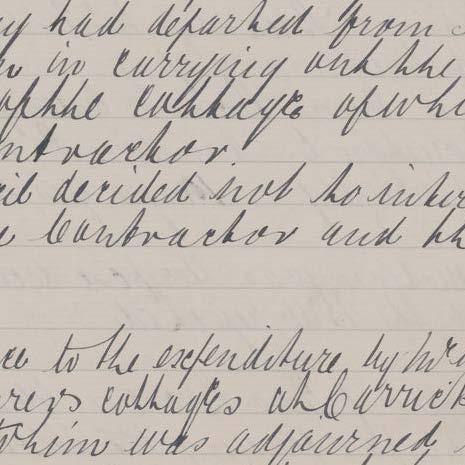 y had departed from
in carrying out the
of the cottage of whi
ntractor.
cil decided not to inter
e Contractor and th
ce to the expenditure by Mr
rers cottages at Carrick
to him was adjourned